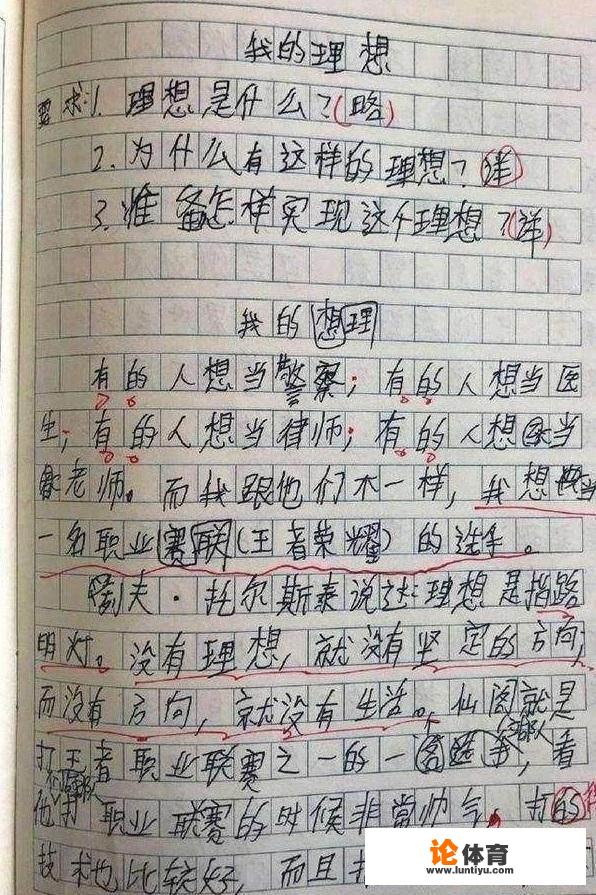 我的理想
要求:1.理想是什么?(略)
2.为什么有这样的理想?(详)
3.准备怎样实现这个理想?(详)
我的想理
有的人想当警察;有的人想当医
生;有的人想当律师;有的人想当
老师。而我跟他们不一样,我想当
一名职业赛联(王者荣耀)的选手。
夫·托尔斯泰说过:理想是指路
明灯。没有理想,就没有坚定的方向,
而没有方向,就没有生活。仙阁就是
打王者职业联赛之一的一名选手,看
他打职业联赛的时候非常帅气,打的
技术也比较好,而且
论体育
www.luntiyu.com